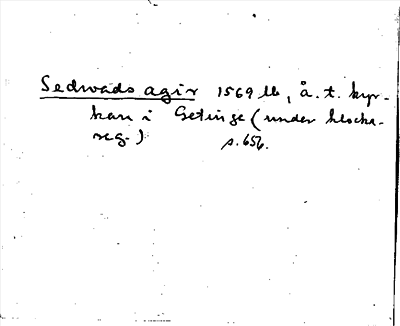 Sedwads agir 1569 lb, å. t. kyr-
kan i Getinge (under klocka-
reg.)
s. 656.